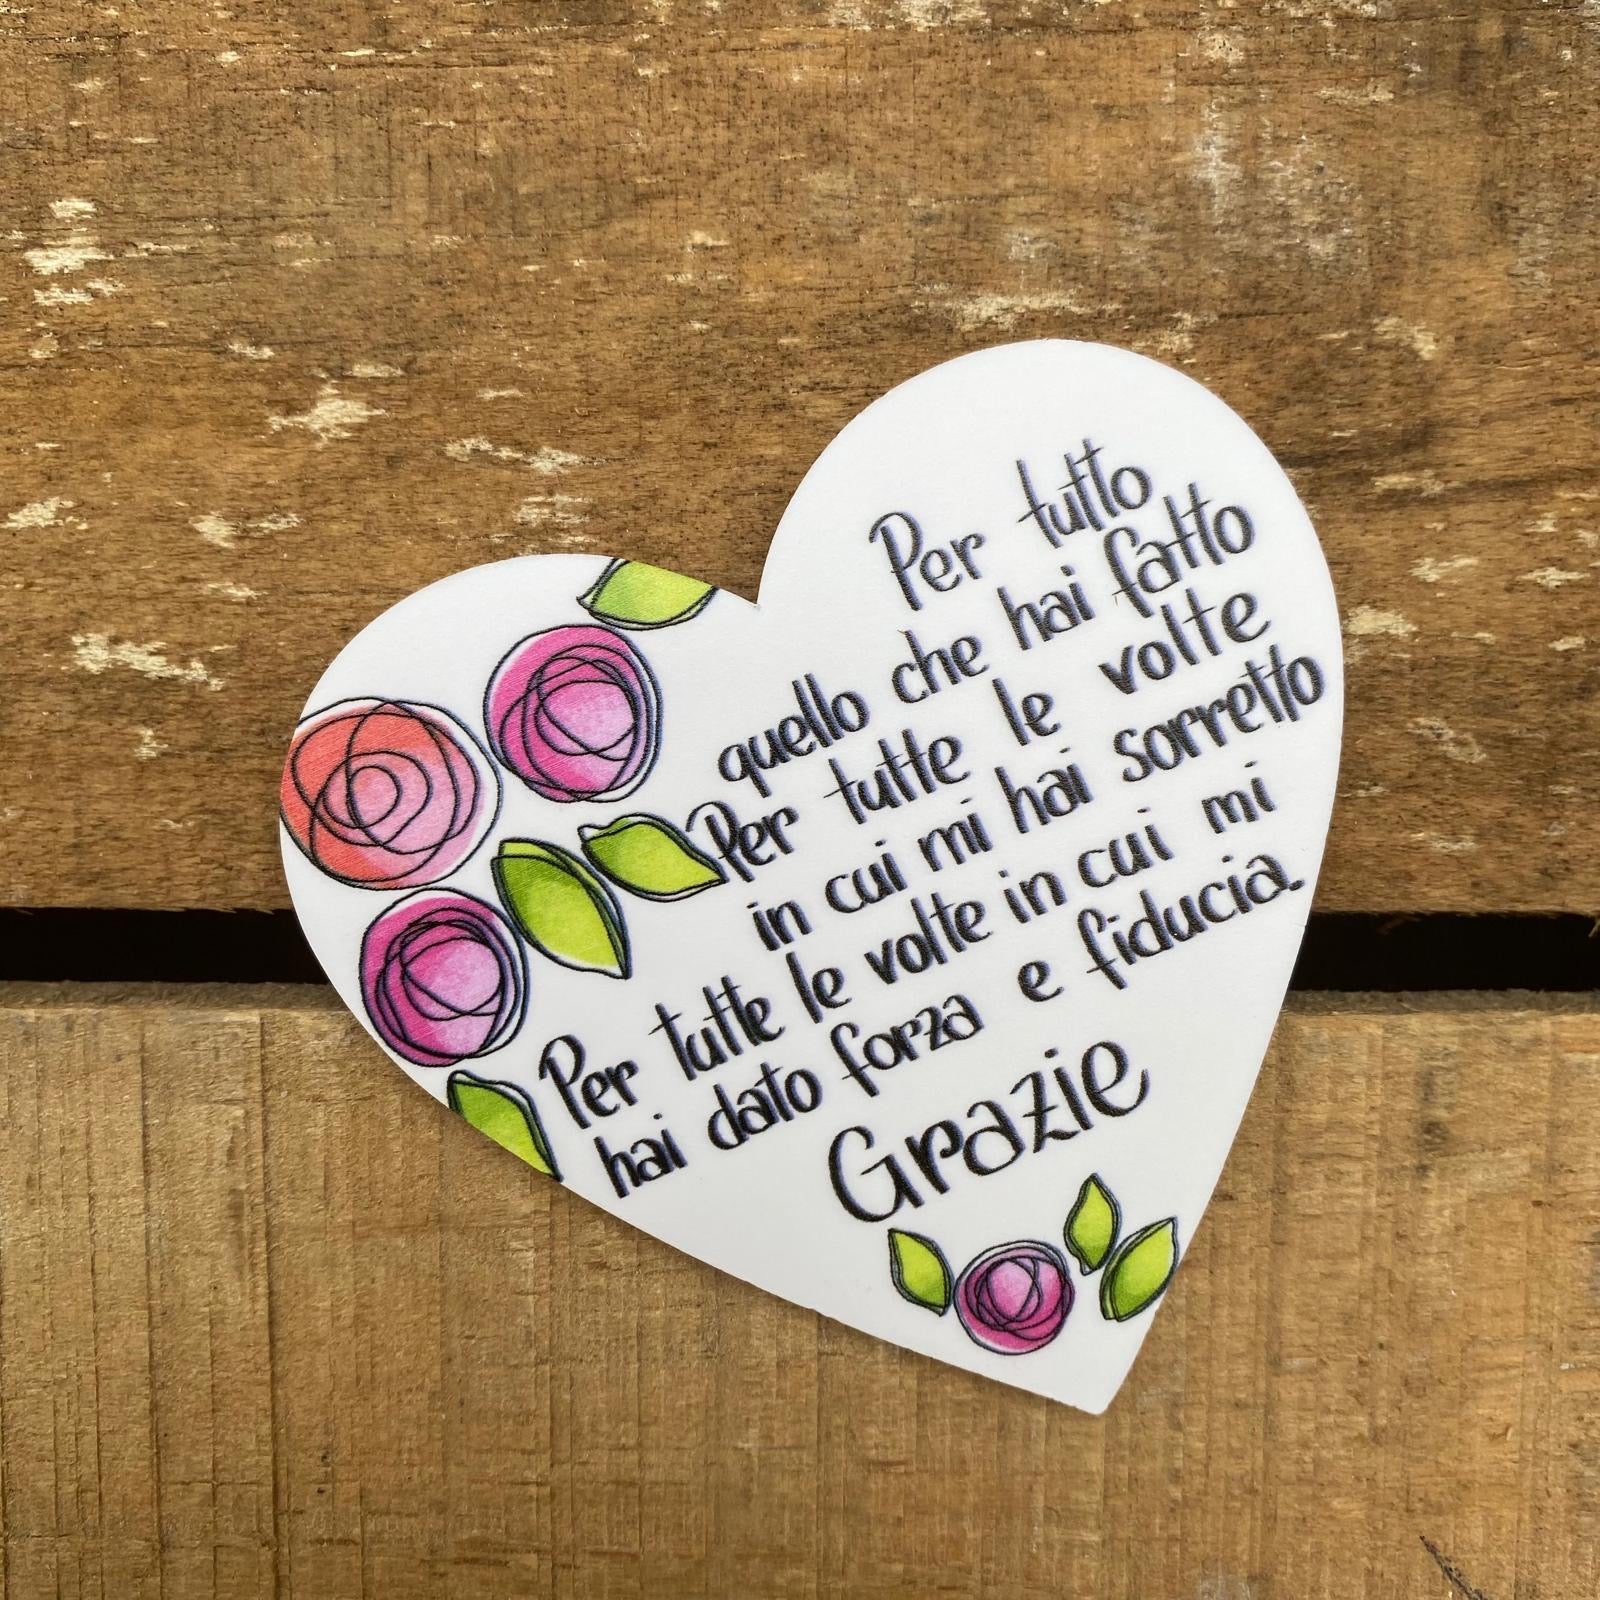 Per tutto
quello che hai fatto
Per tutte le volte
in cui mi hai sorretto
Per tutte le volte in cui mi
hai dato forza e fiducia.
Grazie